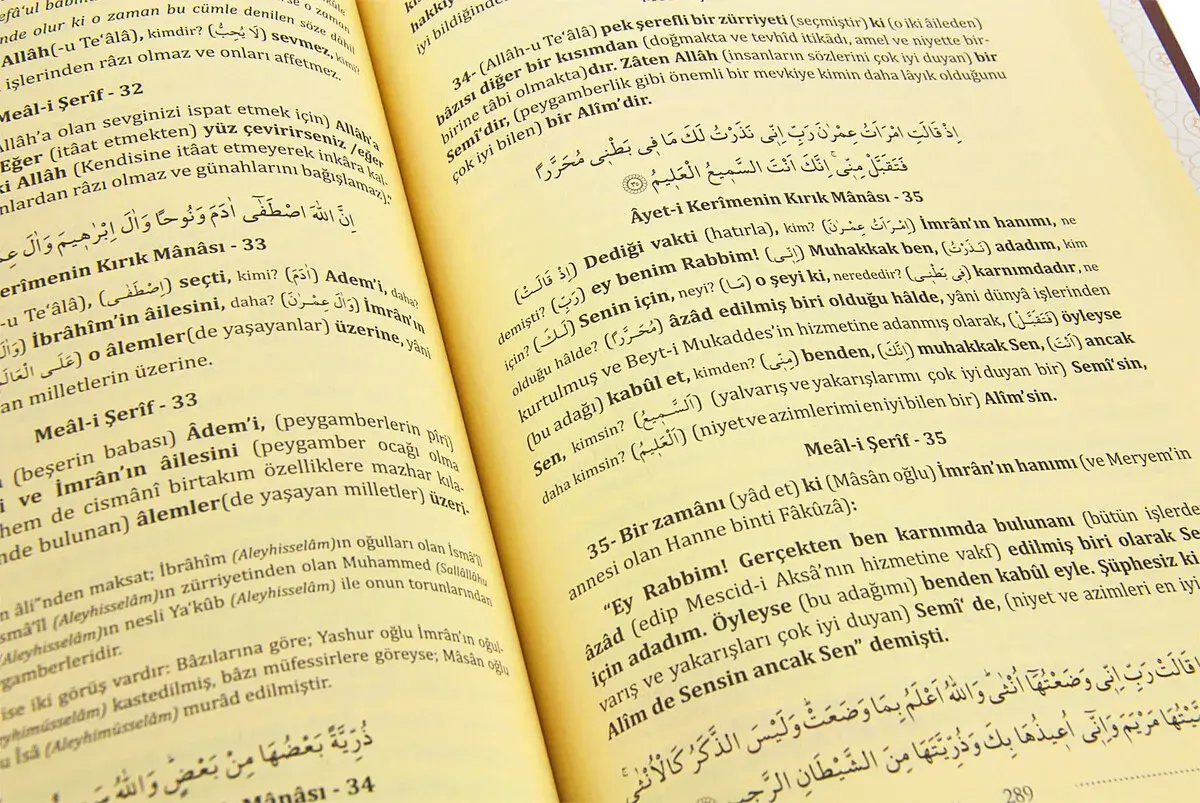 efâ‘ul babında
nde olur ki o zaman bu cümle denilen söze dâhil
Allâh(-u Te‘âlâ), kimdir? (لَا يُحِبُّ) sevmez, kimi?
işlerinden râzı olmaz ve onları affetmez.
Meâl-i Şerîf - 32
Allâh’a olan sevginizi ispat etmek için) Allâh’a
Eğer (itâat etmekten) yüz çevirirseniz /eğer
ki Allâh (Kendisine itâat etmeyerek inkâra kal-
nlardan râzı olmaz ve günahlarını bağışlamaz).”
اِنَّ اللّٰهَ اصْطَفٰٓى اٰدَمَ وَنُوحًا وَاٰلَ اِبْرٰه۪يمَ وَاٰلَ
erîmenin Kırık Mânâsı - 33
-u Te‘âlâ), (اِصْطَفٰى) seçti, kimi? (اٰدَمَ) Adem’i, daha?
İbrâhîm’in âilesini, daha? (وَاٰلَ عِمْرٰنَ) İmrân’ın
o âlemler(de yaşayanlar) üzerine, yâni
an milletlerin üzerine.
Meâl-i Şerîf - 33
(beşerin babası) Âdem’i, (peygamberlerin pîri)
i ve İmrân’ın âilesini (peygamber ocağı olma
hem de cismânî birtakım özelliklere mazhar kıla-
nde bulunan) âlemler(de yaşayan milletler) üzeri-
n âli”nden maksat; İbrâhîm (Aleyhisselâm)ın oğulları olan İsmâ‘îl
smâ‘îl (Aleyhisselâm)ın zürriyetinden olan Muhammed (Sallâllâhu
(Aleyhisselâm)ın nesli Ya‘kûb (Aleyhisselâm) ile onun torunlarından
gamberleridir.
ise iki görüş vardır: Bâzılarına göre; Yashur oğlu İmrân’ın oğul-
eyhimüsselâm) kastedilmiş, bâzı müfessirlere göreyse; Mâsân oğlu
u Îsâ (Aleyhimüsselâm) murâd edilmiştir.
ذُرِّيَّةً بَعْضُهَا مِنْ بَعْضٍۜ وَاللّٰهُ
Mânâsı - 34
hakkıy
iyi bildiğinden
34- (Allâh-u Te‘âlâ) pek şerefli bir zürriyeti (seçmiştir) ki (o iki âileden)
bâzısı diğer bir kısımdan (doğmakta ve tevhîd itikâdı, amel ve niyette bir-
birine tâbi olmakta)dır. Zâten Allâh (insanların sözlerini çok iyi duyan) bir
Semî‘dir, (peygamberlik gibi önemli bir mevkiye kimin daha lâyık olduğunu
çok iyi bilen) bir Alîm’dir.
اِذْ قَالَتِ امْرَاَتُ عِمْرٰنَ رَبِّ اِنّ۪ي نَذَرْتُ لَكَ مَا ف۪ي بَطْن۪ي مُحَرَّرًا
فَتَقَبَّلْ مِنّ۪يۚ اِنَّكَ اَنْتَ السَّم۪يعُ الْعَل۪يمُ ﴿٣٥﴾
Âyet-i Kerîmenin Kırık Mânâsı - 35
(اِذْ قَالَتْ) Dediği vakti (hatırla), kim? (اِمْرَاَتُ عِمْرٰنَ) İmrân’ın hanımı, ne
demişti? (رَبِّ) ey benim Rabbim! (اِنّ۪ي) Muhakkak ben, (نَذَرْتُ) adadım, kim
için? (لَكَ) Senin için, neyi? (مَا) o şeyi ki, nerededir? (ف۪ي بَطْن۪ي) karnımdadır, ne
olduğu hâlde? (مُحَرَّرًا) âzâd edilmiş biri olduğu hâlde, yâni dünyâ işlerinden
kurtulmuş ve Beyt-i Mukaddes’in hizmetine adanmış olarak, (فَتَقَبَّلْ) öyleyse
(bu adağı) kabûl et, kimden? (مِنّ۪ي) benden, (اِنَّكَ) muhakkak Sen, (اَنْتَ) ancak
Sen, kimsin? (اَلسَّم۪يعُ) (yalvarış ve yakarışlarımı çok iyi duyan bir) Semî‘sin,
daha kimsin? (اَلْعَل۪يمُ) (niyet ve azimlerimi en iyi bilen bir) Alîm’sin.
Meâl-i Şerîf - 35
35- Bir zamânı (yâd et) ki (Mâsân oğlu) İmrân’ın hanımı (ve Meryem’in
annesi olan Hanne binti Fâkûzâ):
“Ey Rabbim! Gerçekten ben karnımda bulunanı (bütün işlerde
âzâd (edip Mescid-i Aksâ’nın hizmetine vakf) edilmiş biri olarak Se
için adadım. Öyleyse (bu adağımı) benden kabûl eyle. Şüphesiz ki
varış ve yakarışları çok iyi duyan) Semî‘ de, (niyet ve azimleri en iyi
Alîm de Sensin ancak Sen” demişti.
قَالَتْ رَبِّ اِنّ۪ي وَضَعْتُهَٓا اُنْثٰىۜ وَاللّٰهُ اَعْلَمُ بِمَا وَضَعَتْۜ وَلَيْسَ الذَّكَرُ كَالْاُنْثٰىۚ
مَرْيَمَ وَاِنّ۪ٓي اُع۪يذُهَا بِكَ وَذُرِّيَّتَهَا مِنَ الشَّيْطَانِ الرَّج۪يمِ
289